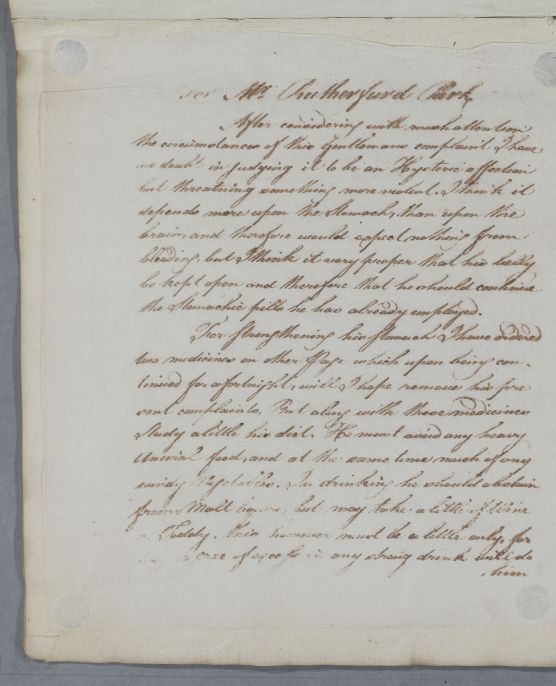 For Mr. Rutherfurd Park,
After considering with much attention
the circumstances of this Gentlemans complaint I have
no doubt in Judging it to be an Hysteric affection
but threatning something more violent. I think it
depends more upon the Stomach, than upon the
brain, and therefore would expect nothing from
bleeding, but I think it very proper that his belly
be kept open and therefore that he should continue
the Stomachic pills he has already employed.
For strengthening his Stomach I have ordered
two medicines on other Page which upon being con-
tinued for a fortnight, will I hope remove his pre
sent complaints. But along with these medicines
Study a little his diet. He must avoid any heavy
food, and at the same time much of any
windy Vegetables. In drinking he should abstain
from Malt liquors, but may take a little of Wine
Toddy, this however must be a little only, for
of excess in any strong drink will do
him